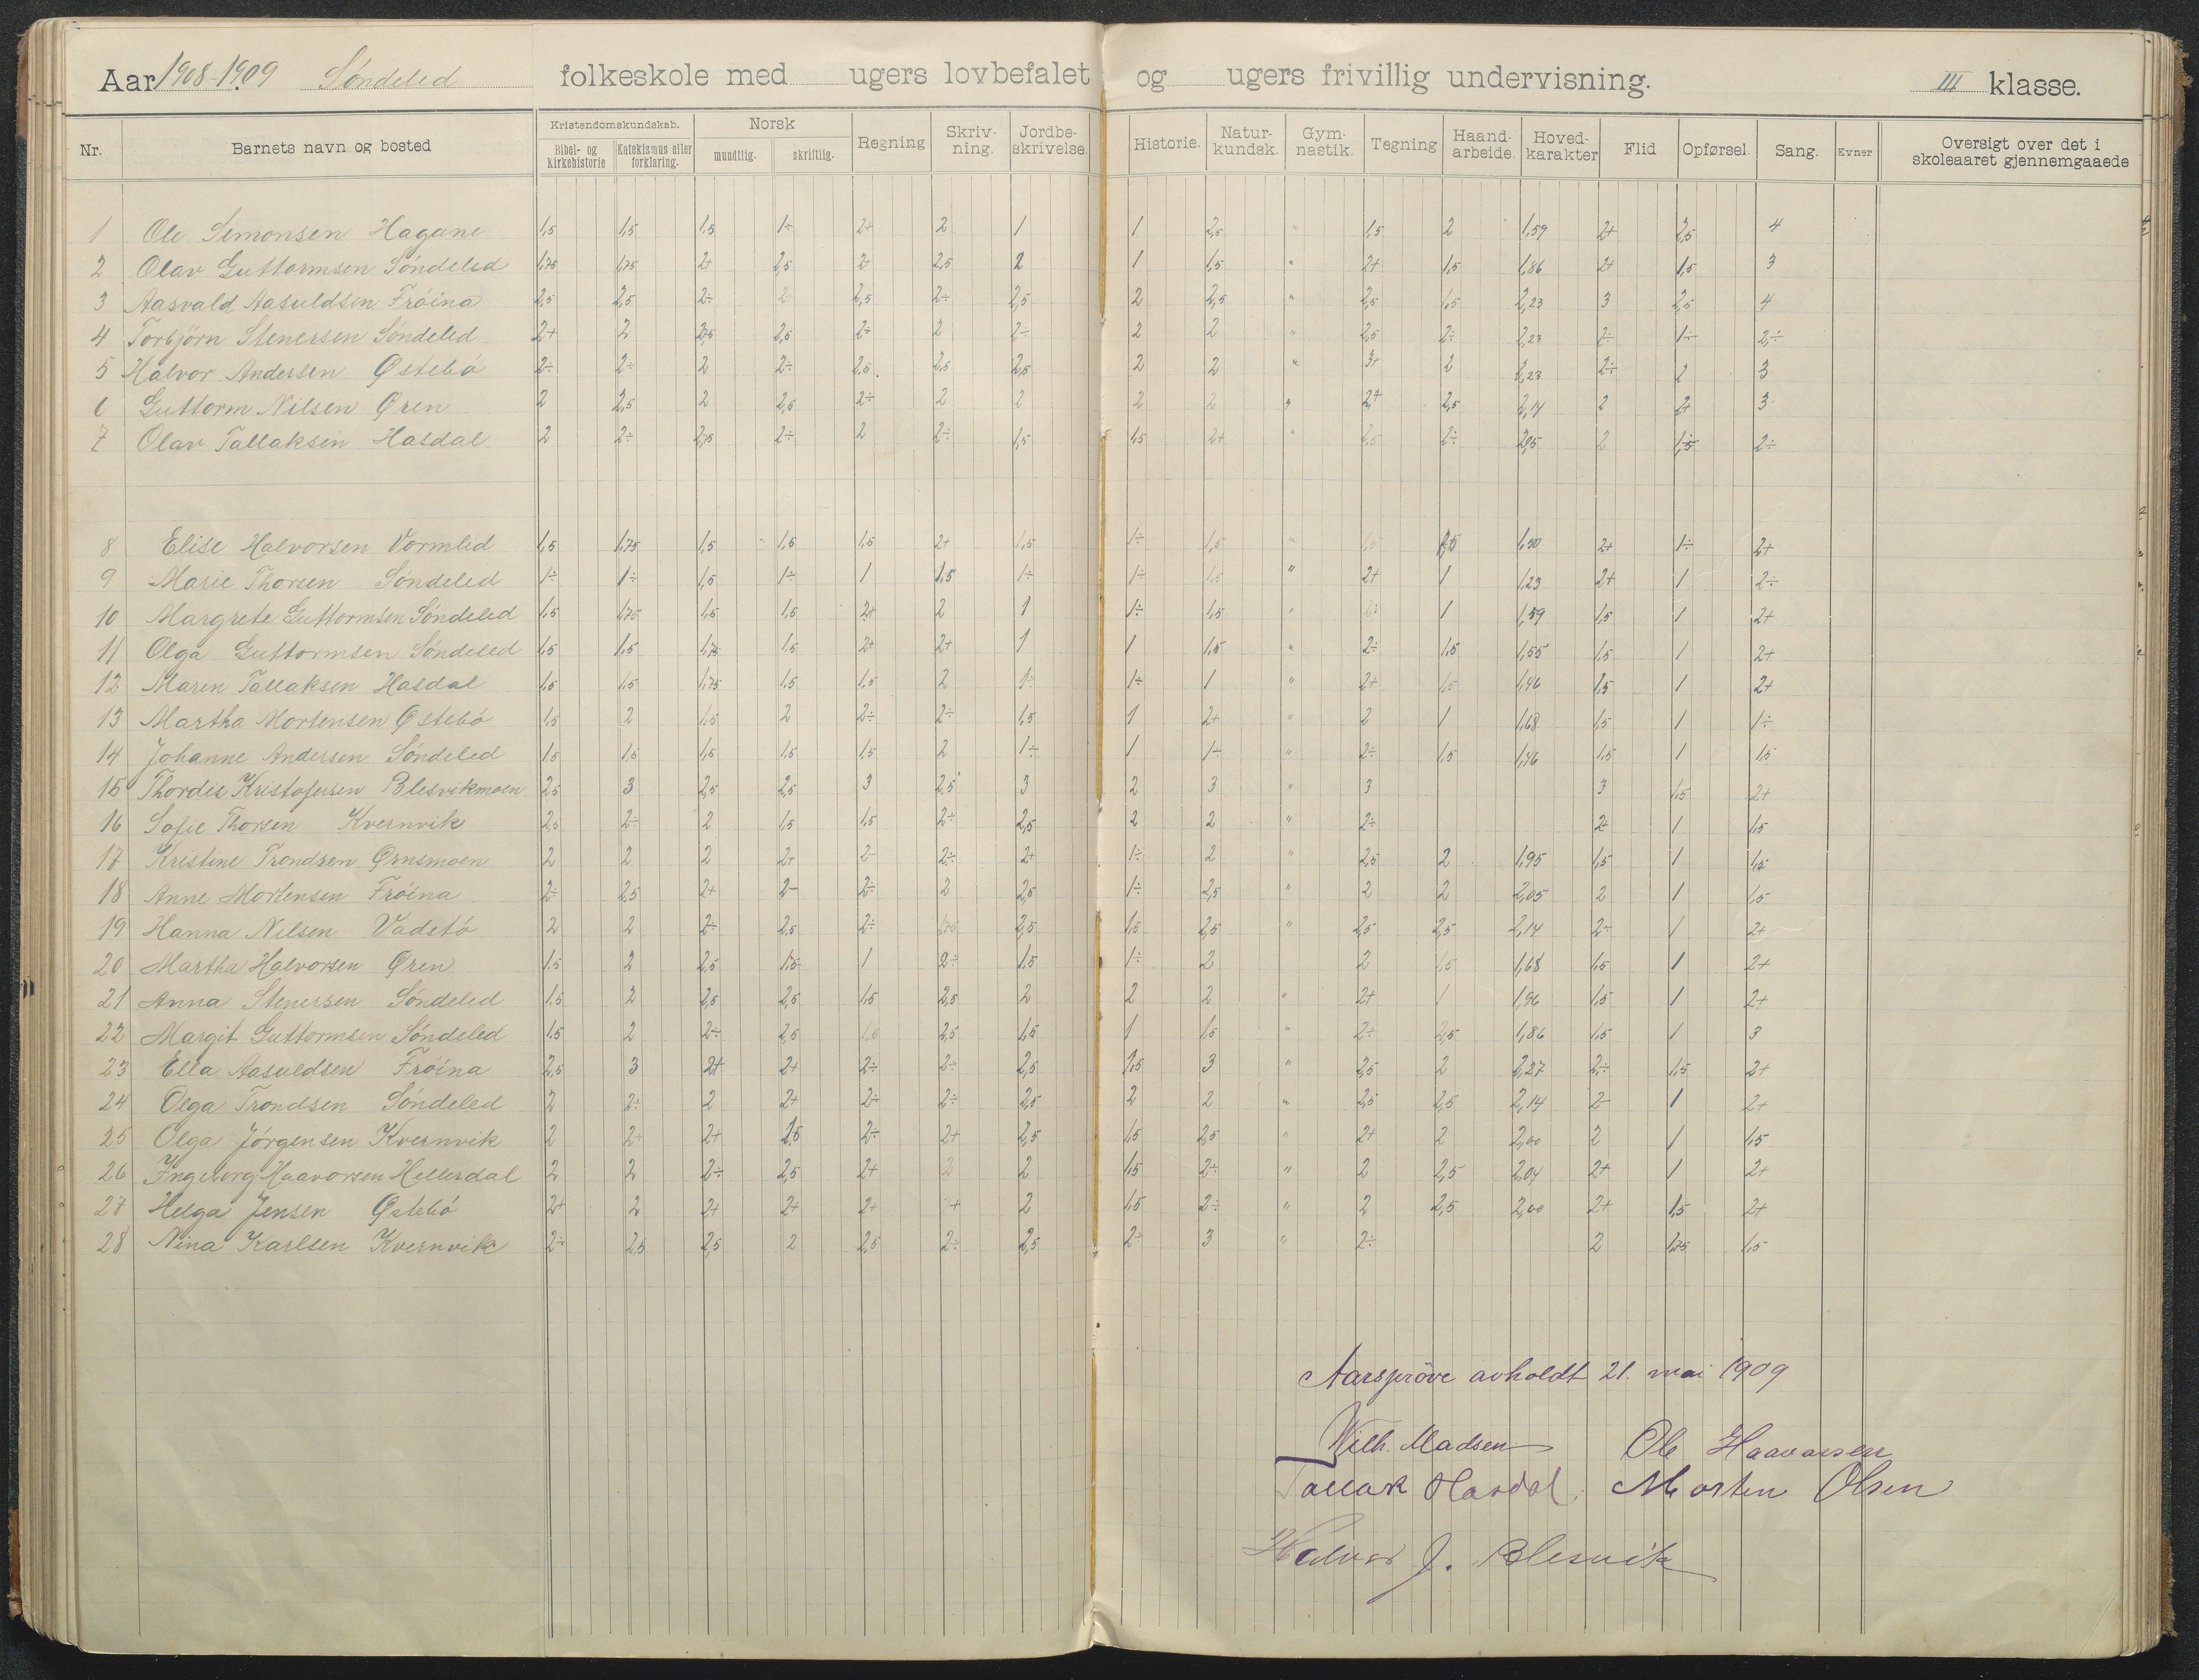 Aar 1908-1909 Söndeled folkeskole med ugers lovbefalet og ugers frivillig undervisning. III klasse.
Nr. Barnets navn og bosted Kristendomskundskab. Bibel- og kirkehistorie Katekismus eller forklaring. Norsk mundtlig. skriftlig. Regning Skriv-ning. Jordbe-skrivelse. Historie. Natur-kundsk. Gym-nastik. Tegning Haand-arbeide. Hoved-karakter Flid Opførsel. Sang. Evner Oversigt over det i skoleaaret gjennemgaaede
1 Ole Simonsen Hagane 1,5 1,5 1,5 1÷ 2+ 2 1 1 2,5 " 1,5 2 1,59 2+ 2,5 4
2 Olav Guttormsen Söndeled 1,75 1,75 2+ 2,5 2+ 2,5 2 1 1,5 " 2+ 1,5 1,86 2+ 1,5 3
3 Aasvald Aasuldsen Fröina 2,5 2,5 2÷ 2÷ 2,5 2÷ 2,5 2 2,5 " 2,5 1,5 2,23 3 2,5 4
4 Torbjörn Stenersen Söndeled 2+ 2 2,75 2,5 2÷ 2 2÷ 2 2 " 2,5 2÷ 2,23 2÷ 1÷ 2÷
5 Halvor Andersen Østebö 2÷ 2÷ 2 2÷ 2,5 2,5 2,5 2 2 " 3+ 2 2,23 2÷ 2 3
6 Guttorm Nilsen Øren 2 2,5 2 2,5 2÷ 2 2 2 2 " 2+ 2,5 2,14 2 2+ 3
7 Olav Tallaksen Hasdal 2 2÷ 2,75 2÷ 2 2÷ 1,5 1,5 2+ " 2,5 2÷ 2,05 2 1,5 2÷
8 Elise Halvorsen Vormlid 1,5 1,75 1,5 1,5 1,5 2+ 1,5 1÷ 1,5 " 1,5 1,5 1,50 2+ 1÷ 2+
9 Marie Thorsen Söndeled 1÷ 1÷ 1,5 1÷ 1 1,5 1÷ 1÷ 1,5 " 2+ 1 1,23 2+ 1 2÷
10 Margrete Guttormsen Söndeled 1,5 1,75 1,5 1,5 2+ 2 1 1÷ 1,5 " 2÷ 1 1,59 1,5 1 2+
11 Olga Guttormsen Söndeled 1,5 1,5 1,75 1,5 2+ 2+ 1 1 1,5 " 2÷ 1,5 1,55 1,5 1 2+
12 Maren Tallaksen Hasdal 1,5 1,5 1,75 1,5 1,5 2 1÷ 1÷ 1 " 2+ 1,5 1,46 1,5 1 2+
13 Martha Mortensen Østebö 1,5 2 1,5 2 2÷ 2÷ 1,5 1 2+ " 2 1 1,68 1,5 1 1÷
14 Johanne Andersen Söndeled 1,5 1,5 1,5 1,5 1,5 2 1÷ 1 1÷ " 2÷ 1,5 1,46 1,5 1 1,5
15 Thordis Kristofersen Blesvikmoen 2,5 3 2,5 2,5 3 2,5 3 2 3 " 3 3 1,5 2+
16 Sofie Thorsen Kvernvik 2,5 2÷ 2 1,5 1,5 2÷ 2,5 2 2 " 2÷ 2+ 1 1,5
17 Kristine Trondsen Ørnsmoen 2 2 2 2+ 2- 2÷ 2+ 1÷ 2 " 2,5 2 1,95 1,5 1 1,5
18 Anne Mortensen Fröina 2÷ 2,5 2+ 2- 2÷ 2 2,5 1÷ 2,5 " 2 2 2,05 2 1 1,5
19 Hanna Nilsen Vadstö 2 2 2÷ 2,5 2÷ 1,75 2,5 1,5 2,5 " 2,5 2,5 2,14 2÷ 1 2+
20 Martha Halvorsen Øren 1,5 2 2,5 1,5 1 2÷ 1,5 1÷ 2 2 1,5 1,68 1,5 1 2+
21 Anna Stenersen Söndeled 1,5 2 2,5 2,5 1,5 2,5 2 2 2 " 2+ 1 1,96 1,5 1 2+
22 Margit Guttormsen Söndeled 1,5 2 2÷ 2,5 1,5 2,5 1,5 1 1,5 " 2÷ 2,5 1,86 1,5 1 3
23 Ella Aasuldsen Fröina 2,5 3 2+ 2+ 2÷ 2÷ 2,5 1,5 3 " 2,5 2 2,27 2÷ 1,5 2+
24 Olga Trondsen Söndeled 2 2÷ 2 2+ 2÷ 2÷ 2,5 2 2 " 2,5 2,5 2,14 2- 1 2+
25 Olga Jörgensen Kvernvik 2 2÷ 2+ 1,5 2÷ 2+ 2,5 1,5 2,5 " 2+ 2 2,00 2 1 1,5
26 Ingeborg Haavorsen Hellersdal 2 2 2÷ 2,5 2+ 2 2 1,5 2÷ " 2 2,5 2,04 2+ 1 2+
27 Helga Jensen Østebö 2+ 2 2+ 2+ 2+ 2+ 2 1,5 2÷ " 2 2,5 2,00 2+ 1,5 2+
28 Nina Karlsen Kvernvik 2÷ 2,5 2,5 2 2,5 2÷ 2,5 2÷ 3 " 2÷ 2 1,75 1,5
Aarspröve avholdt 21. mai 1909
Wilh. Madsen Ole Haavorsen
Tallak Hasdal. Morten Olsen
Halvor J. Blesvik